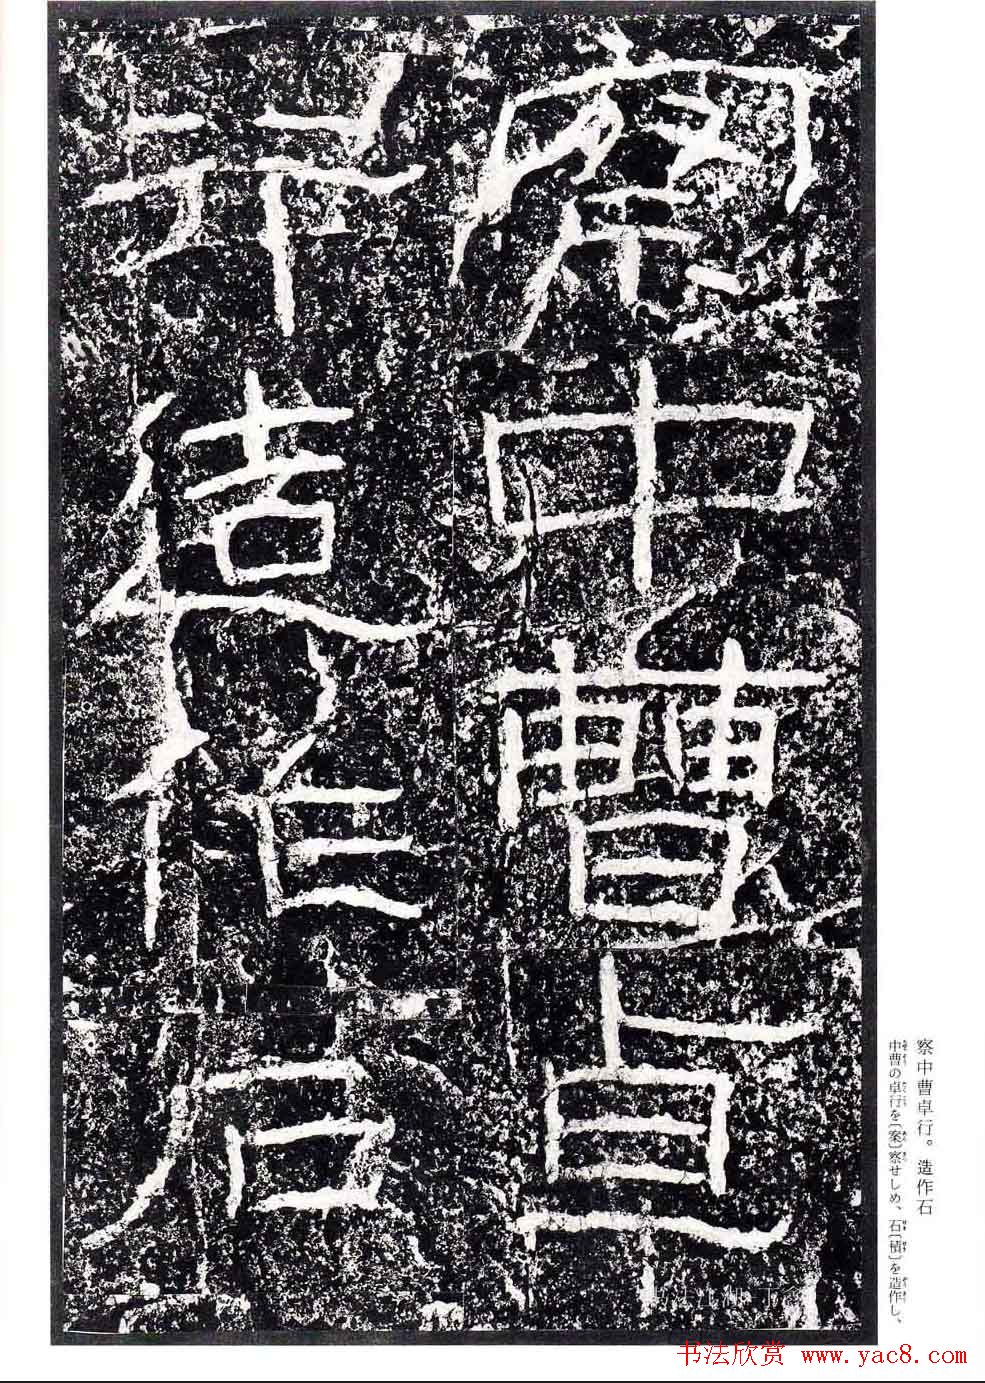 察中曹卓
行造作石
察中曹卓行。造作石
中曹の卓行を〔案〕察せしめ、石〔積〕を造作し、
书法欣赏 www.yac8.com